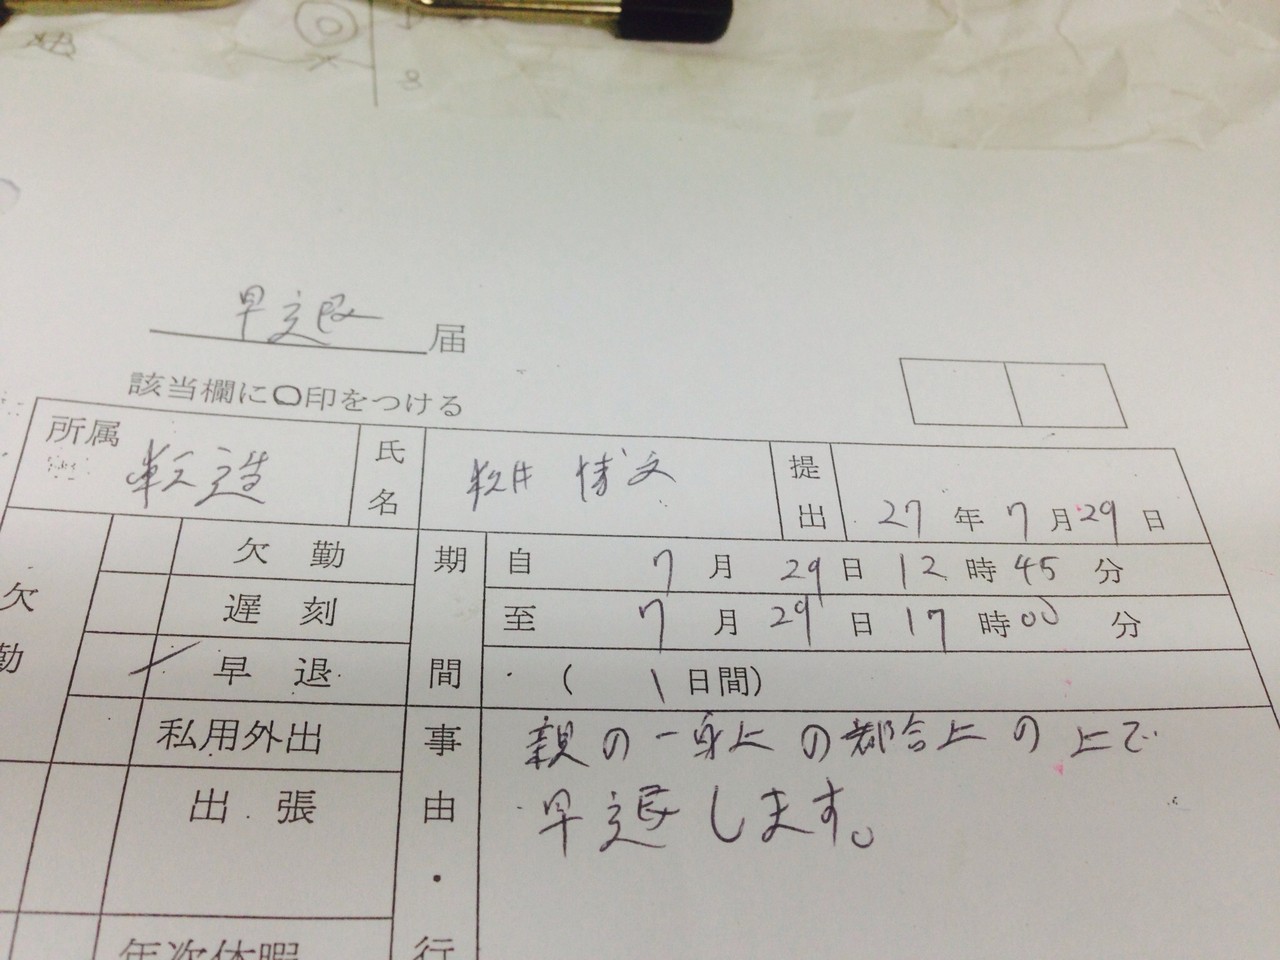 早退届
該当欄に〇印をつける
所属 製造 氏名 博文 提出 27年7月29日
欠勤 欠勤 期間 自 7月29日12時45分
遅刻 至 7月29日17時00分
早退 ( 1日間)
私用外出 事由・行 親の一身上の都合上の上で
出張 早退します。
年次休暇